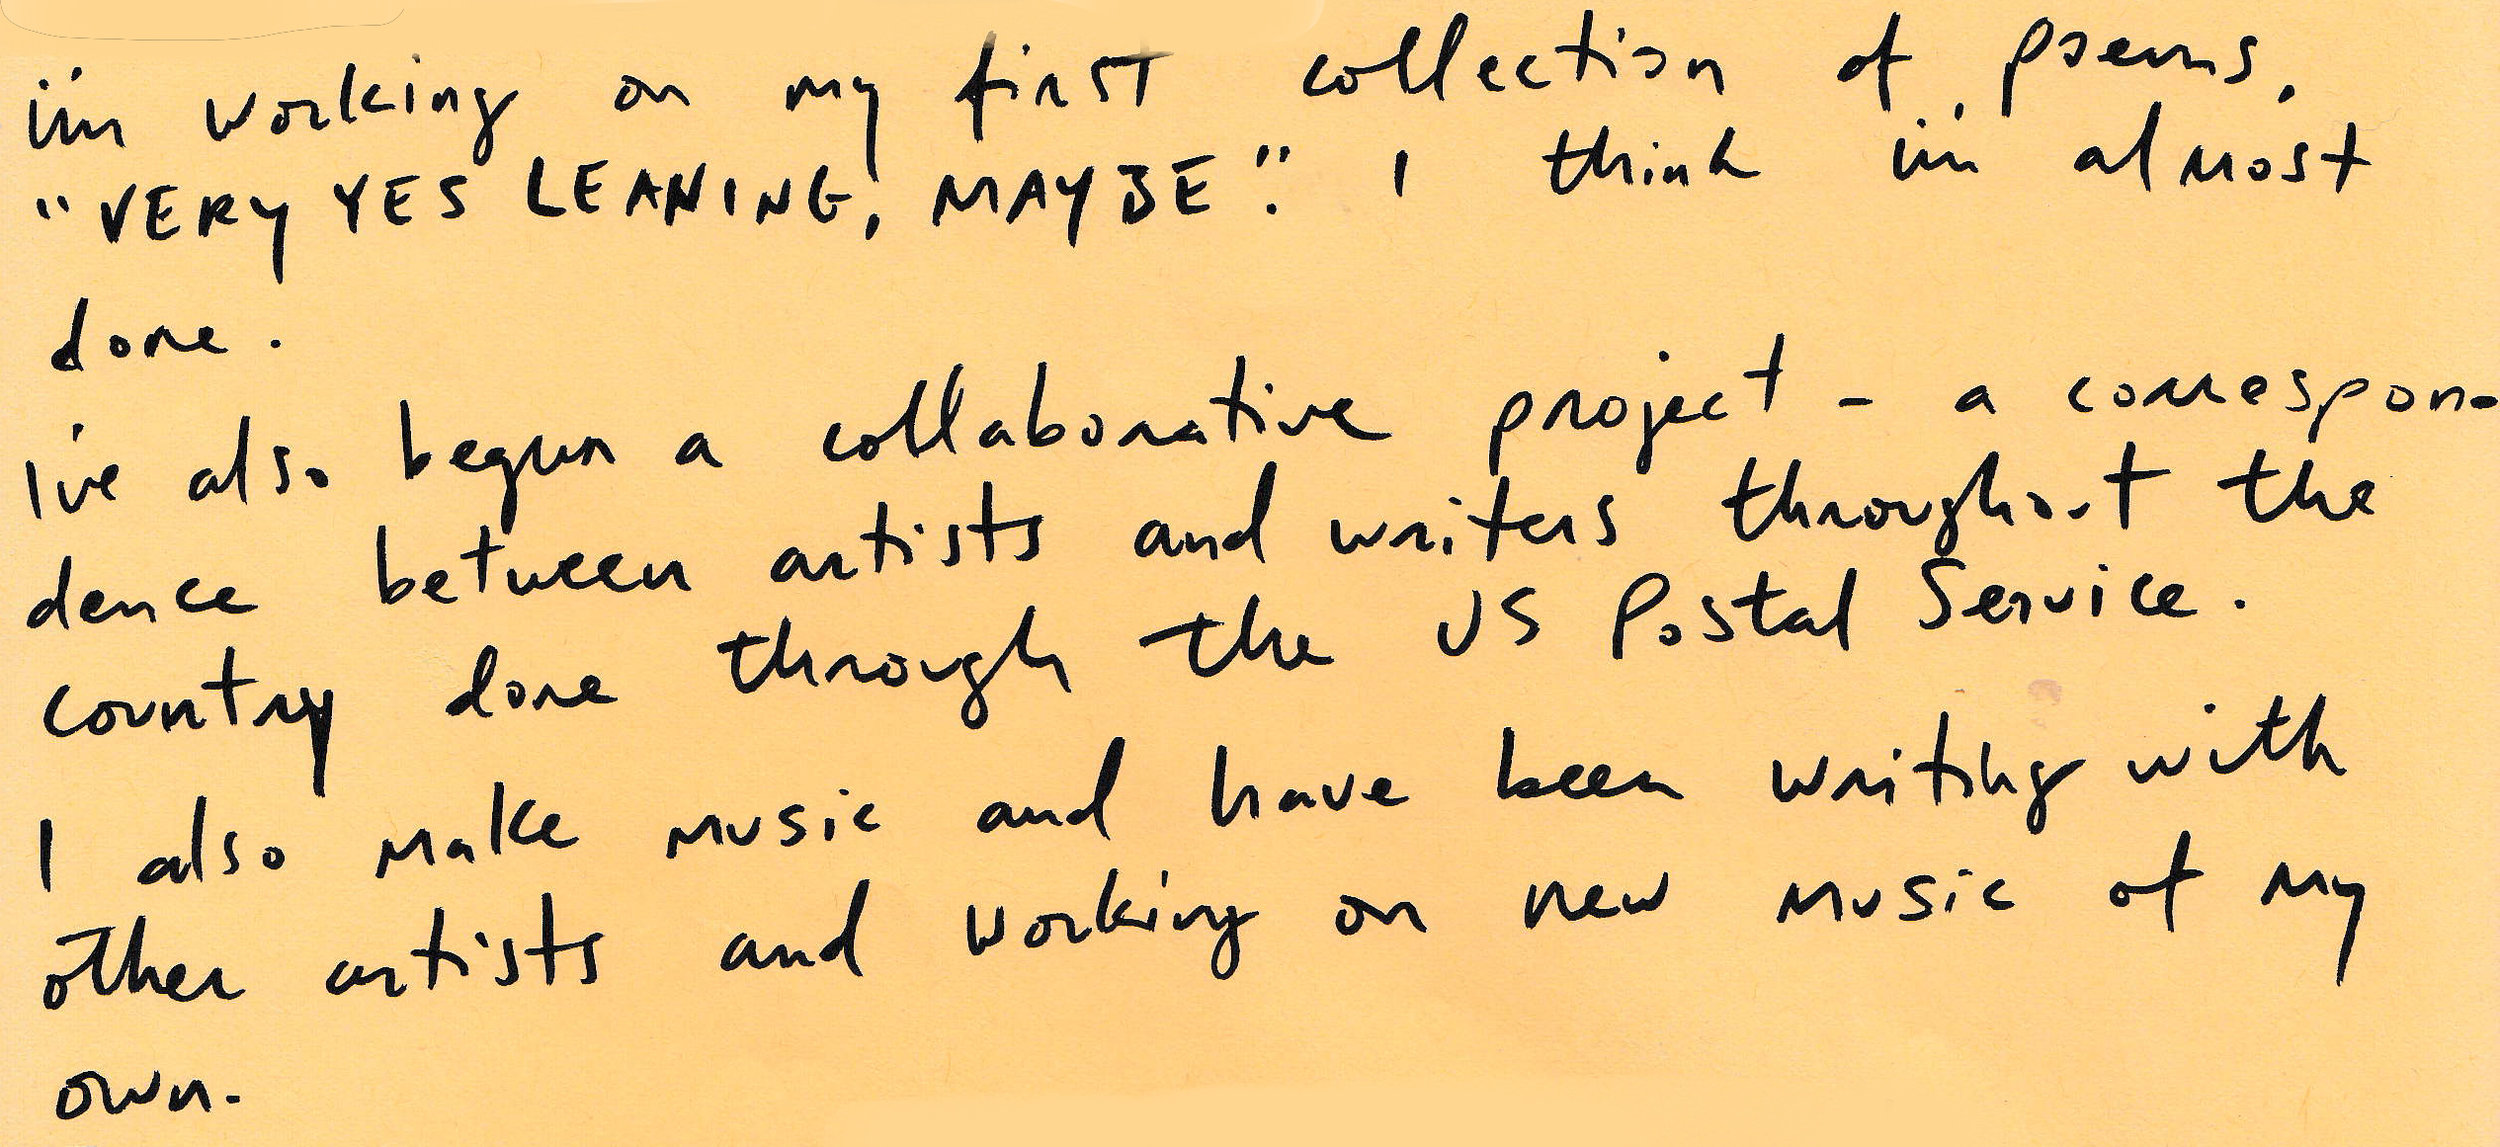 i'm working on my first collection of poems,
"VERY YES LEANING, MAYBE". I think i'm almost
done.
I've also begun a collaborative project - a correspon-
dence between artists and writers throughout the
country done through the US Postal Service.
I also make music and have been writing with
other artists and working on new music of my
own.